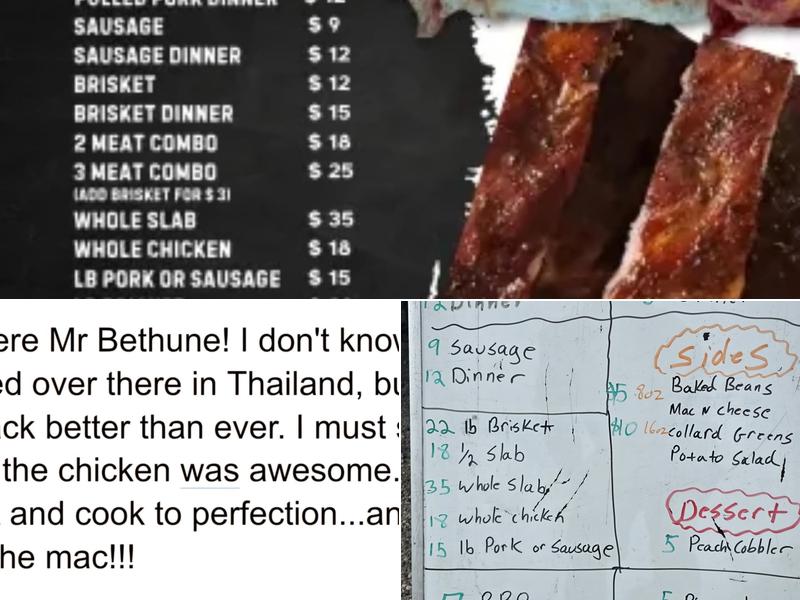 PULLED PORK DINNER $ 12
SAUSAGE $ 9
SAUSAGE DINNER $ 12
BRISKET $ 12
BRISKET DINNER $ 15
2 MEAT COMBO $ 18
3 MEAT COMBO $ 25
(ADD BRISKET FOR $ 3)
WHOLE SLAB $ 35
WHOLE CHICKEN $ 18
LB PORK OR SAUSAGE $ 15
ere Mr Bethune! I don't know
ed over there in Thailand, bu
ack better than ever. I must s
the chicken was awesome.
and cook to perfection...an
he mac!!!
12 Dinner
9 Sausage
12 Dinner
22 lb Brisket
18 1/2 Slab
35 whole Slab
18 whole chicken
15 lb Pork or Sausage
Sides
$5 8oz Baked Beans
Mac N cheese
$10 16oz Collard Greens
Potato Salad
Dessert
5 Peach Cobbler